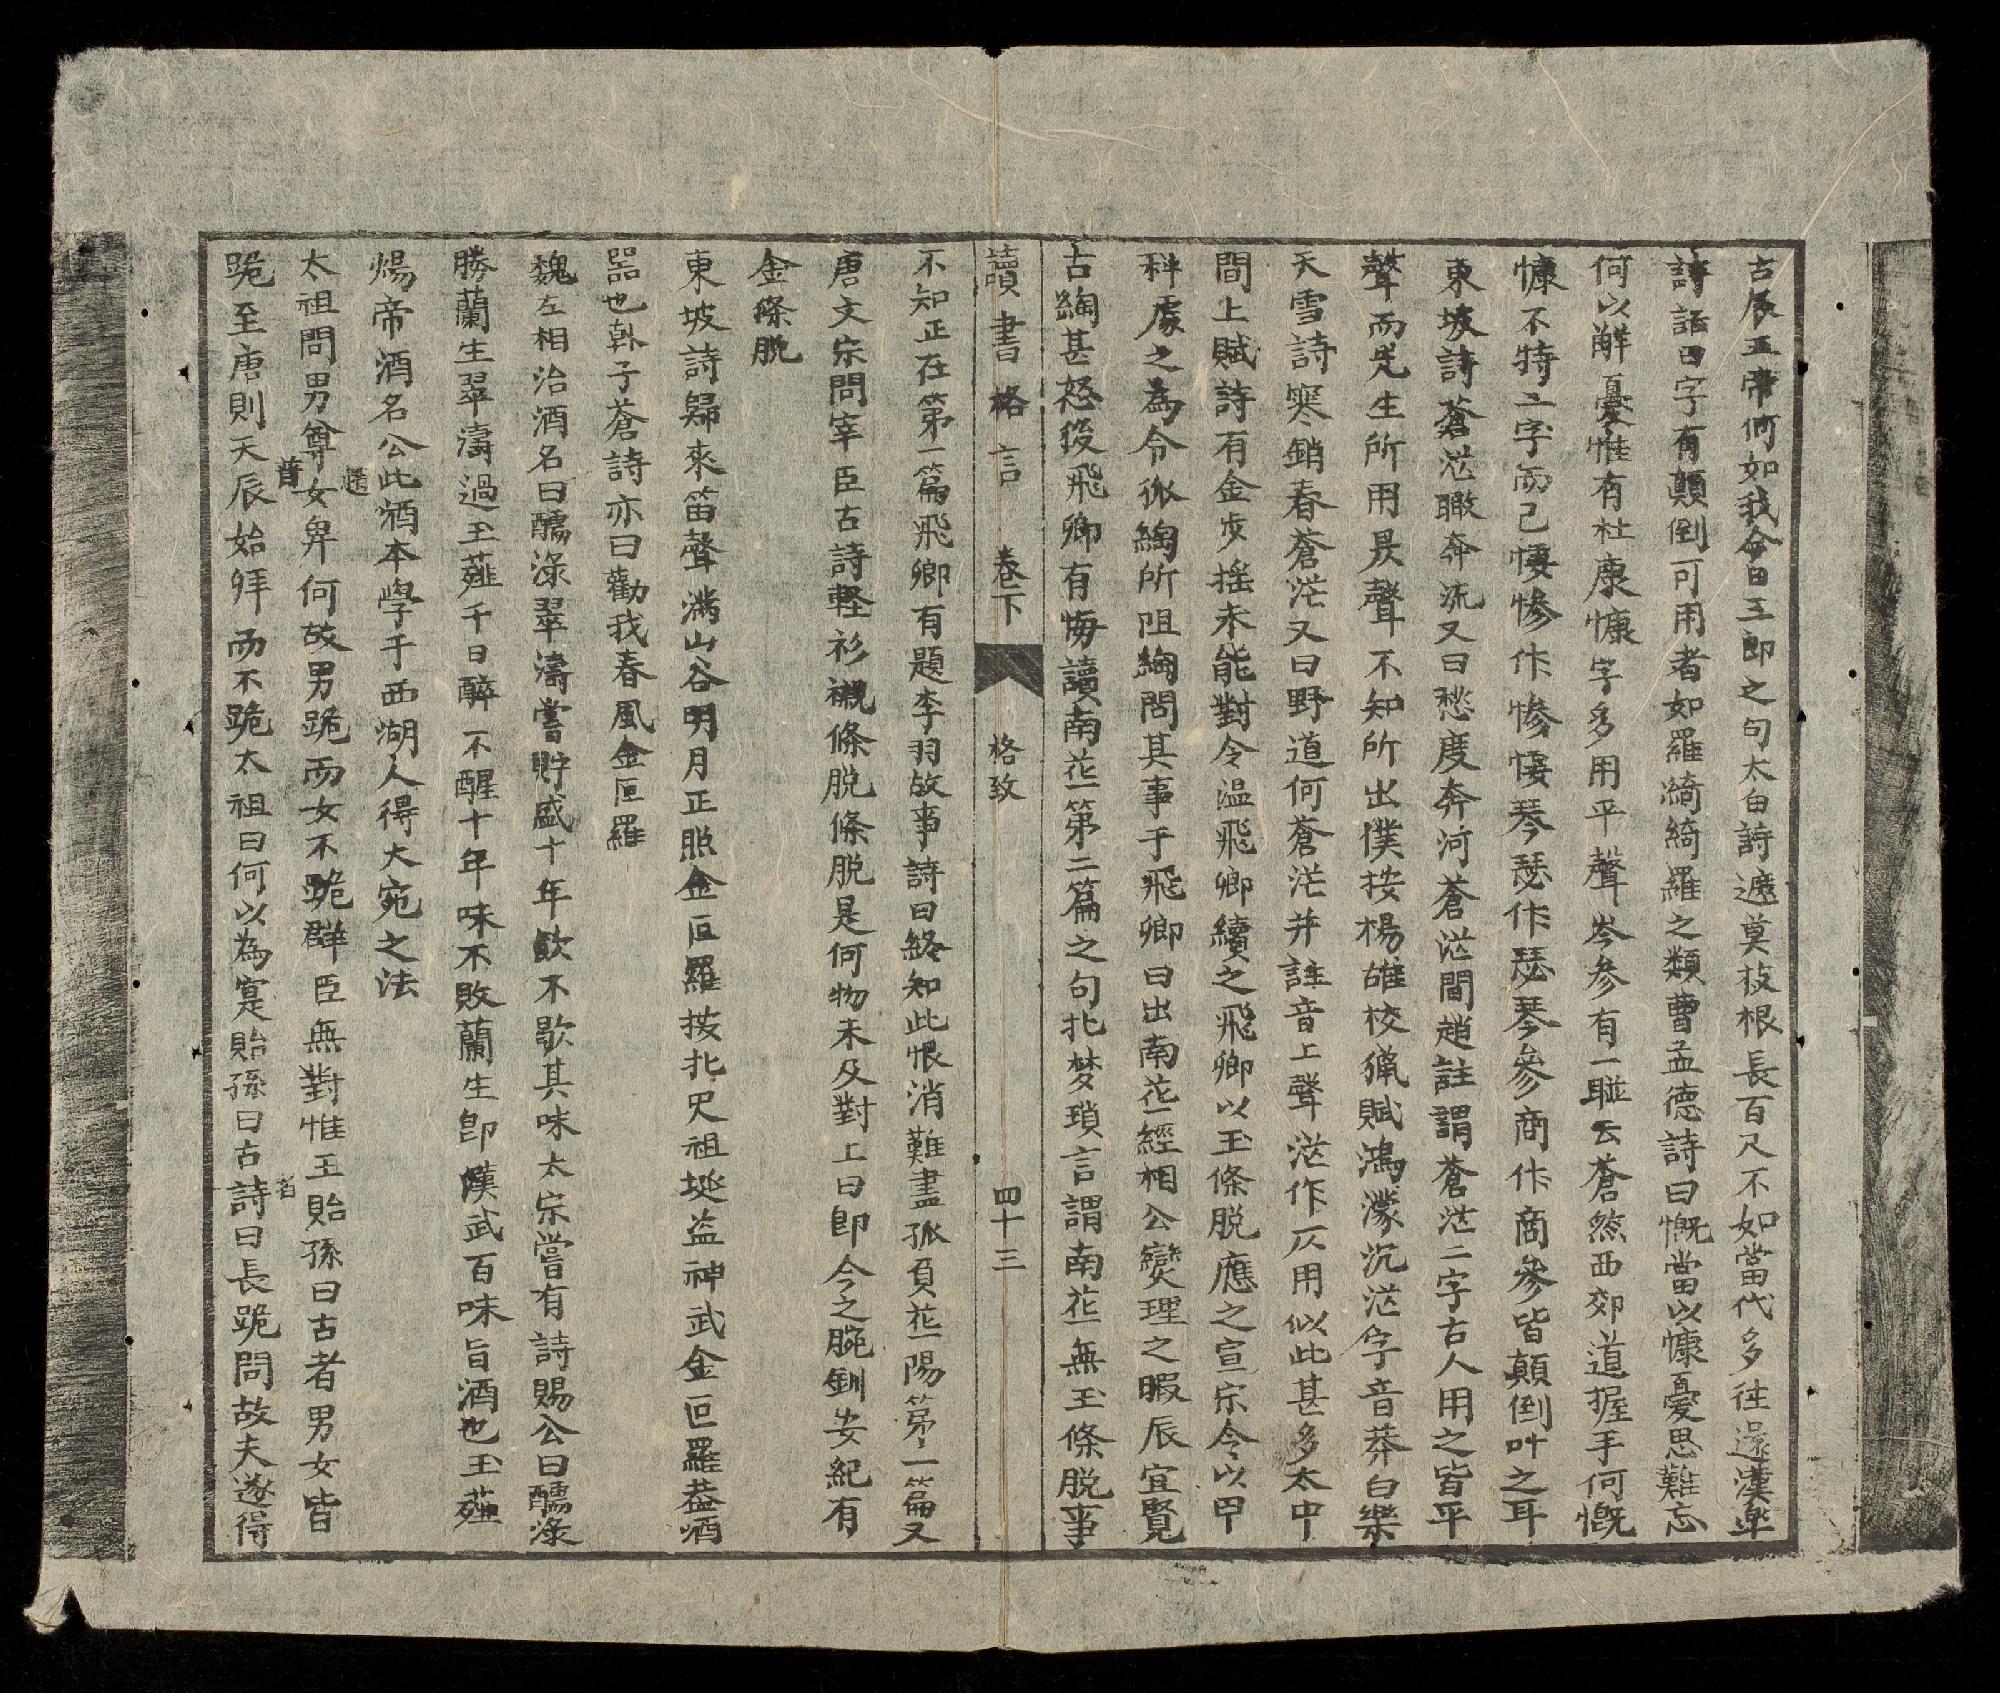 古辰五帝何如我今日三郎之句太白詩遮莫枝根長百尺不如當代多徃還漢臯
詩話曰字有顛倒可用者如羅綺綺羅之類曹孟德詩曰慨當以慷憂思難忘
何以解憂惟有杜康慷字多用平聲岑参有一聯云蒼然西郊道握手何慨
慷不特二字而已悽惨作惨悽琴瑟作瑟琴參商作商參皆顛倒叶之耳
東坡詩蒼茫瞰奔流又曰愁度奔河蒼茫間趙註謂蒼茫二字古人用之皆平
聲而先生所用是聲不知所出僕按楊雄校獵賦鴻濛沉茫字音莽白樂
天雪詩寒銷春蒼茫又曰野道何蒼茫并註音上聲茫作仄用似此甚多太中
間上賦詩有金步揺未能對令温飛卿續之飛卿以玉條脱應之宣宗令以甲
科處之為令狐綯所阻綯問其事于飛卿曰出南花經相公燮理之暇辰宜覧
古綯甚怒後飛卿有悔讀南花第二篇之句北梦瑣言謂南花無玉條脱事
讀書格言 卷下 格致 四十三
不知正在第一篇飛卿有題李羽故事詩曰終知此恨消難盡孤負花陽第一篇又
唐文宗問宰臣古詩軽衫襯條脱條脱是何物未及對上曰即今之腕釧安紀有
金條脱
東坡詩歸來笛聲满山谷明月正照金叵羅按北史祖埏盗神武金叵羅葢酒
噐也韩子蒼詩亦曰勸我春風金叵羅
魏左相治酒名曰醽渌翠濤嘗貯盛十年飲不歇其味太宗嘗有詩賜公曰醽渌
勝蘭生翠濤過玉薤千日醉不醒十年味不敗蘭生即漢武百味旨酒也玉薤
煬帝酒名公此酒本學于西湖人得大宛之法
太祖問男尊女卑何故男跪而女不跪群臣無對惟王貽孫曰古者男女皆
跪至唐則天辰始拜而不跪太祖曰何以為寔貽孫曰古詩曰長跪問故夫遂得